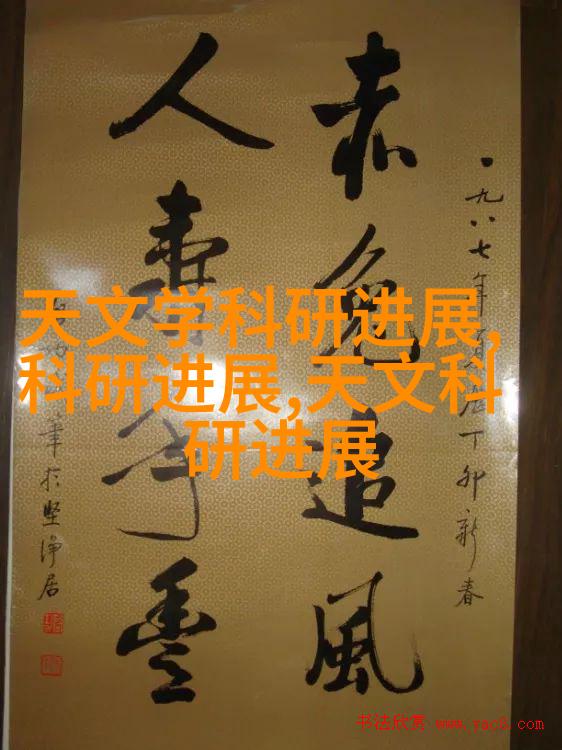 一九八七年丁卯新春
赤兔追風
人壽年豐
於坚净居
天文学科研进展,
科研进展,天文科
研进展
书法欣赏 www.yac8.com